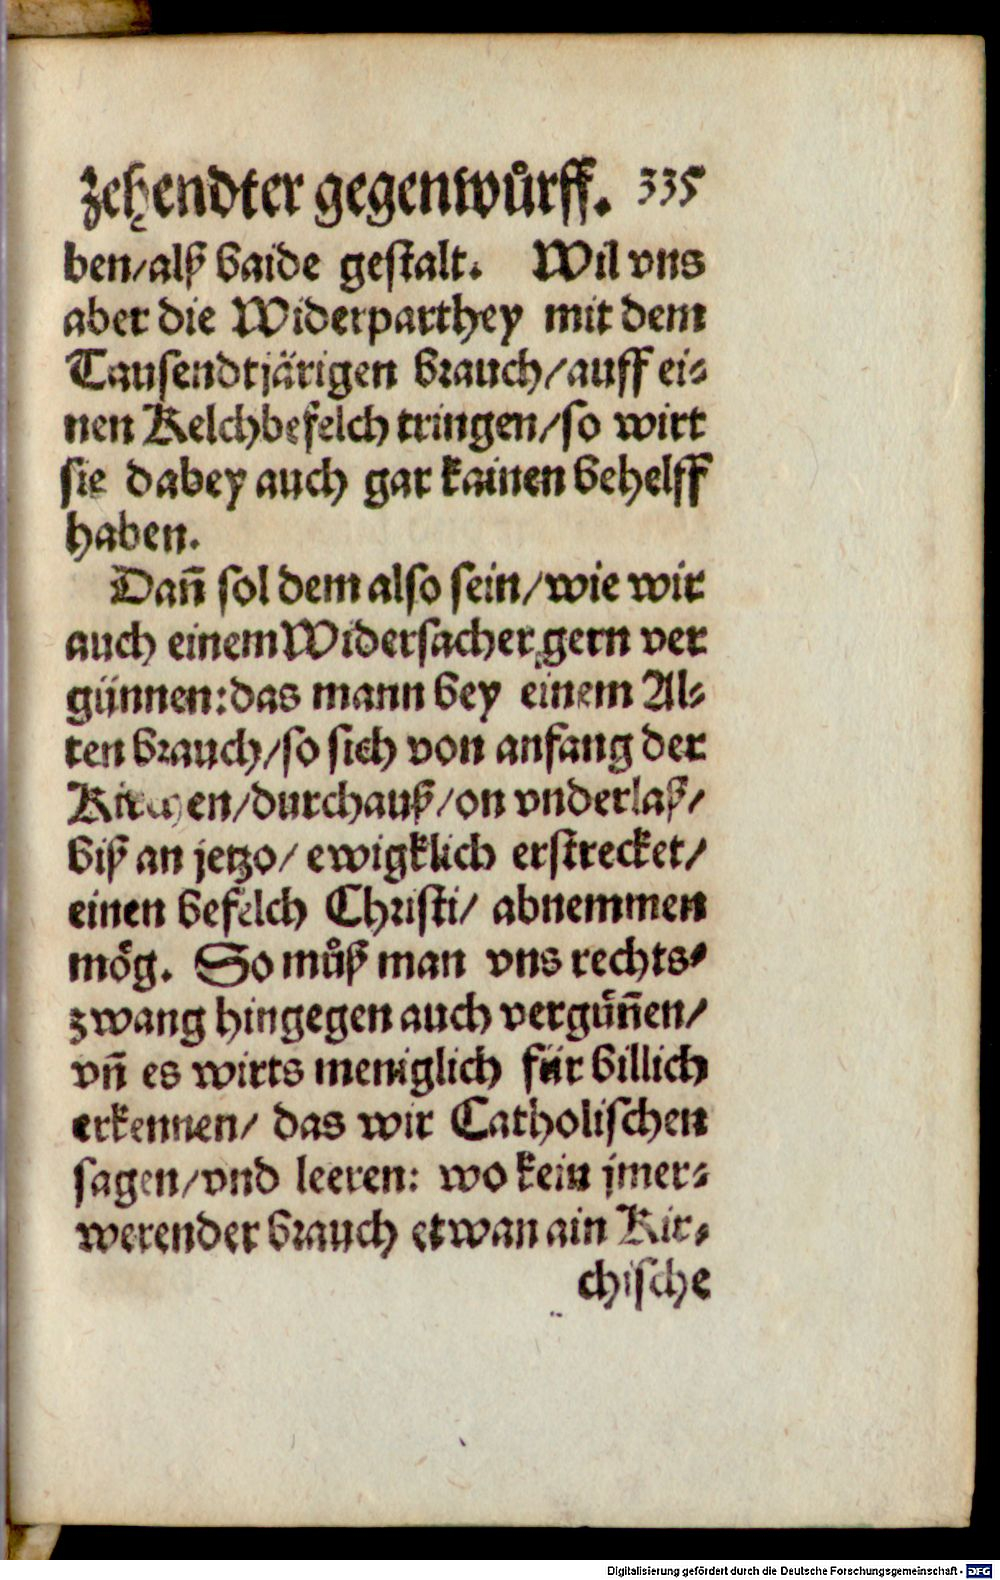 zehendter gegenwůrff. 335
ben/alß baide gestalt. Wil vns
aber die Widerparthey mit dem
Tausendtjärigen brauch/auff ei-
nen Kelchbefelch tringen/so wirt
sie dabey auch gar kainen behelff
haben.
Dañ sol dem also sein/wie wir
auch einem Widersacher gern ver
günnen:das mann bey einem Al-
ten brauch/so sich von anfang der
Kirchen/durchauß/on vnderlaß/
biß an jetzo/ ewigklich erstrecket/
einen befelch Christi/ abnemmen
mög. So můß man vns rechts-
zwang hingegen auch vergüñen/
vñ es wirts meniglich für billich
erkennen/ das wir Catholischen
sagen/vnd leeren: wo kein jmer-
werender brauch etwan ain Kir-
chische
Digitalisierung gefördert durch die Deutsche Forschungsgemeinschaft - DFG